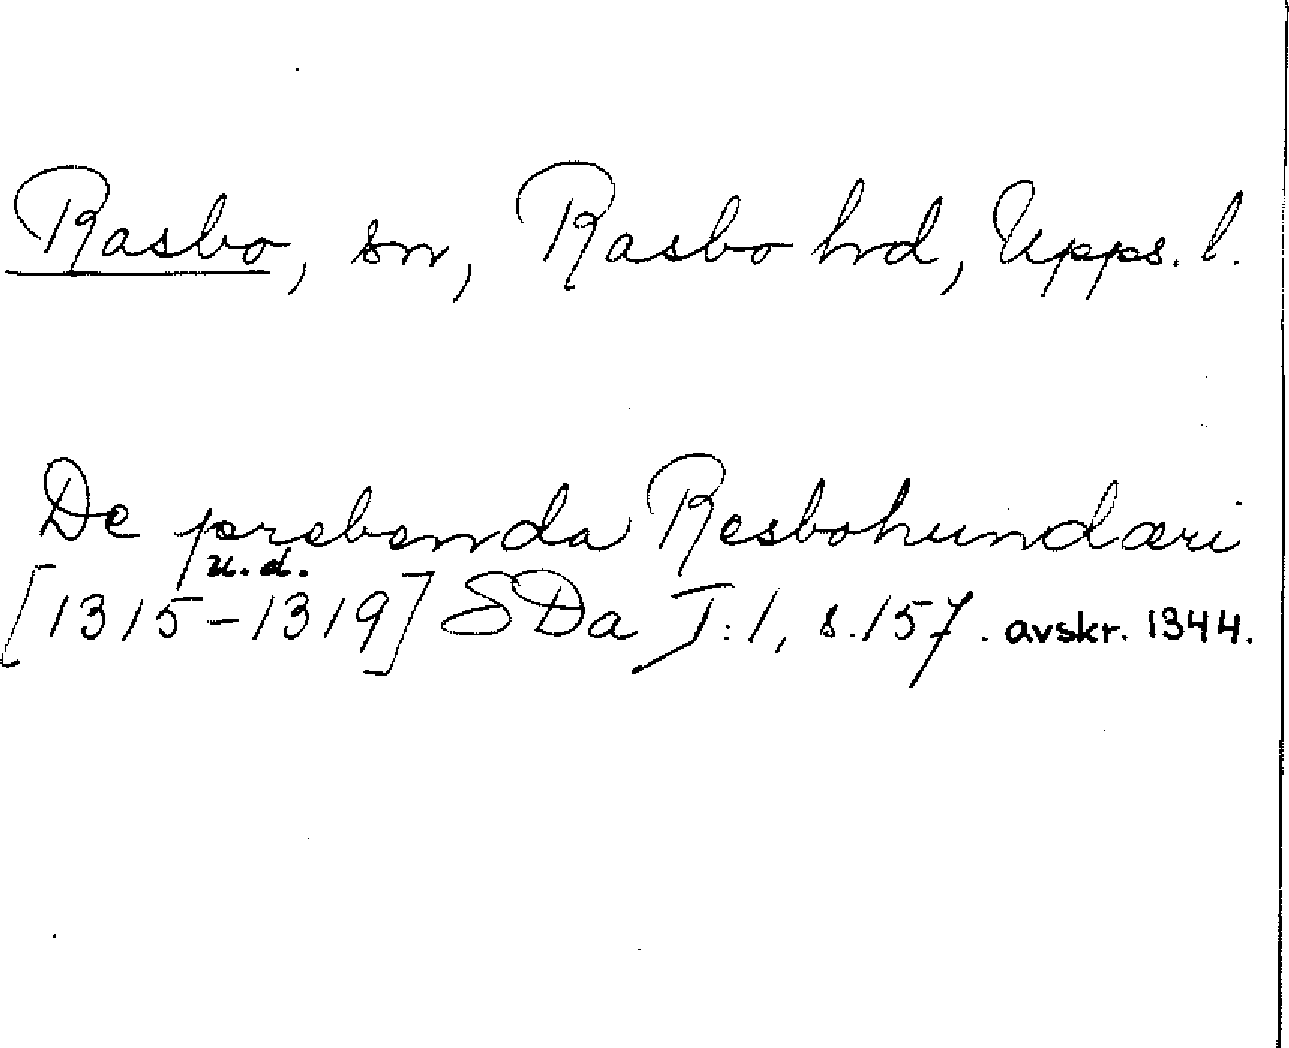 Rasbo, sn, Rasbo hd, Upps. l.
De prebenda Resbohundæri
u.d.
[1315-1319] SDa I:1, s.157. avskr. 1344.